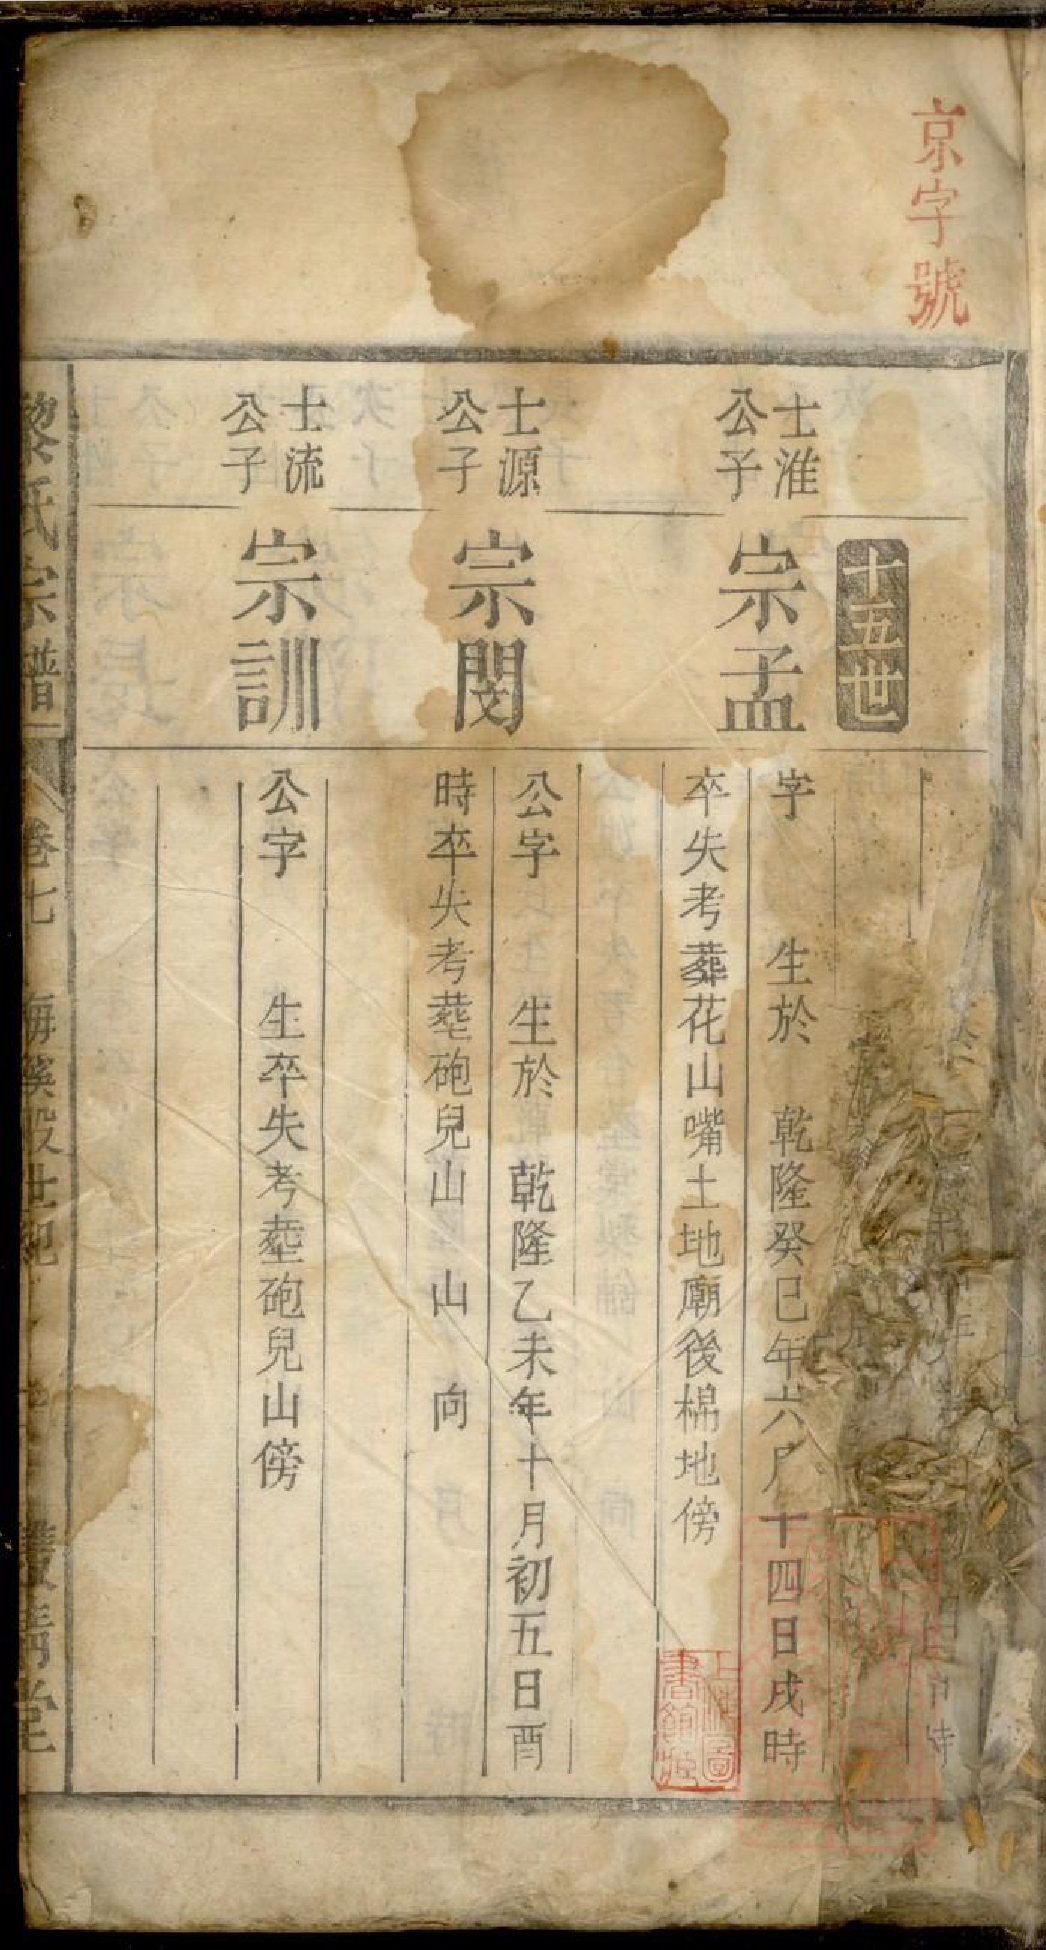 京字號
十五世
士淮
公子
宗孟
字　生於　乾隆癸巳年六月十四日戌時
卒失考葬花山嘴土地廟後棉地傍
士源
公子
宗閔
公字　生於　乾隆乙未年十月初五日酉
時卒失考塟砲兒山　山　向
士流
公子
宗訓
公字　生卒失考塟砲兒山傍
黎氏宗譜
卷七
上海圖
書館藏